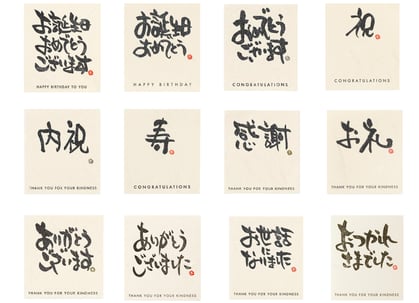 お誕生日
おめでとう
ございます
HAPPY BIRTHDAY TO YOU
お誕生日
おめでとう
HAPPY BIRTHDAY
おめでとう
ございます
CONGRATULATIONS
祝
CONGRATULATIONS
内祝
THANK YOU FOR YOUR KINDNESS
寿
CONGRATULATIONS
感謝
THANK YOU FOR YOUR KINDNESS
お礼
THANK YOU FOR YOUR KINDNESS
ありがとう
ございます
THANK YOU FOR YOUR KINDNESS
ありがとう
ございました
THANK YOU FOR YOUR KINDNESS
お世話
になりました
THANK YOU FOR YOUR KINDNESS
おつかれ
さまでした
THANK YOU FOR YOUR KINDNESS